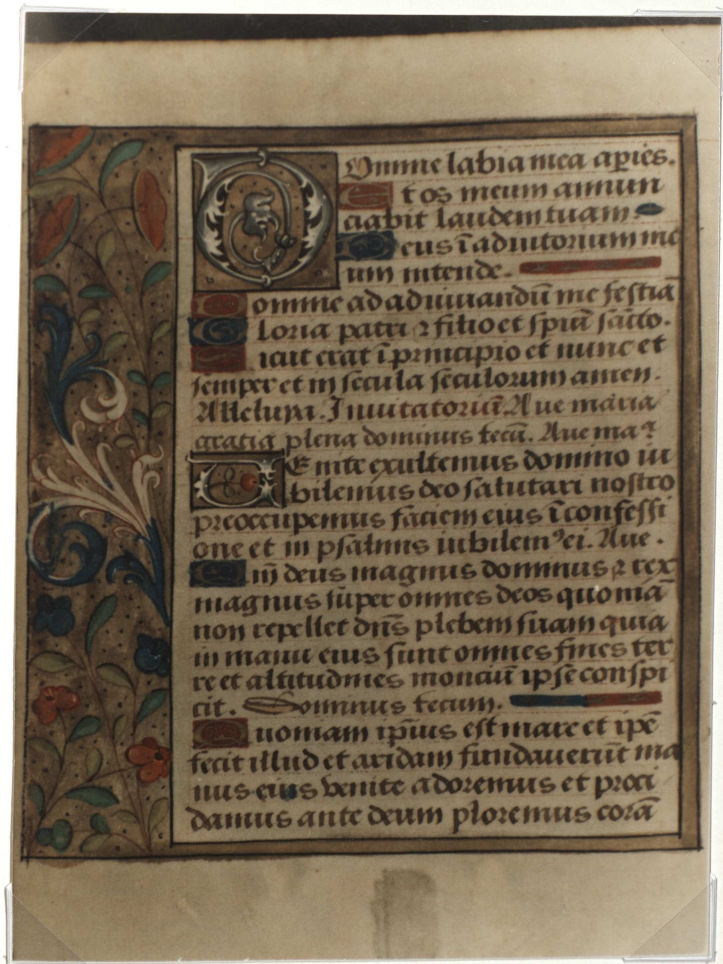 Domine labia mea aperies.
Et os meum annun
ciabit laudem tuam
Deus ī adiutorium me
um intende.
Domine ad adiuuandū me festia
Gloria patri ⁊ filio et spūi sācto.
Sicut erat ī principio et nunc et
semper et in secula seculorum amen.
Alleluya. Inuitatoriū. Aue maria
gratia plena dominus tecū. Aue ma⁊
Uenite exultemus domino iu
bilemus deo salutari nostro
preoccupemus faciem eius ī confessi
one et in psalmis iubilemꝰ ei. Aue.
Qm̄ deus magnus dominus ⁊ rex
magnus sūper omnes deos quoniā
non repellet dn̄s plebem suam quia
in manu eius sunt omnes fines ter
re et altitudines monciū ipse conspi
cit. Dominus tecum.
Quoniam ip̄ius est mare et ip̄e
fecit illud et aridam fundauerūt ma
nus eius venite adoremus et proci
damus ante deum ploremus corā